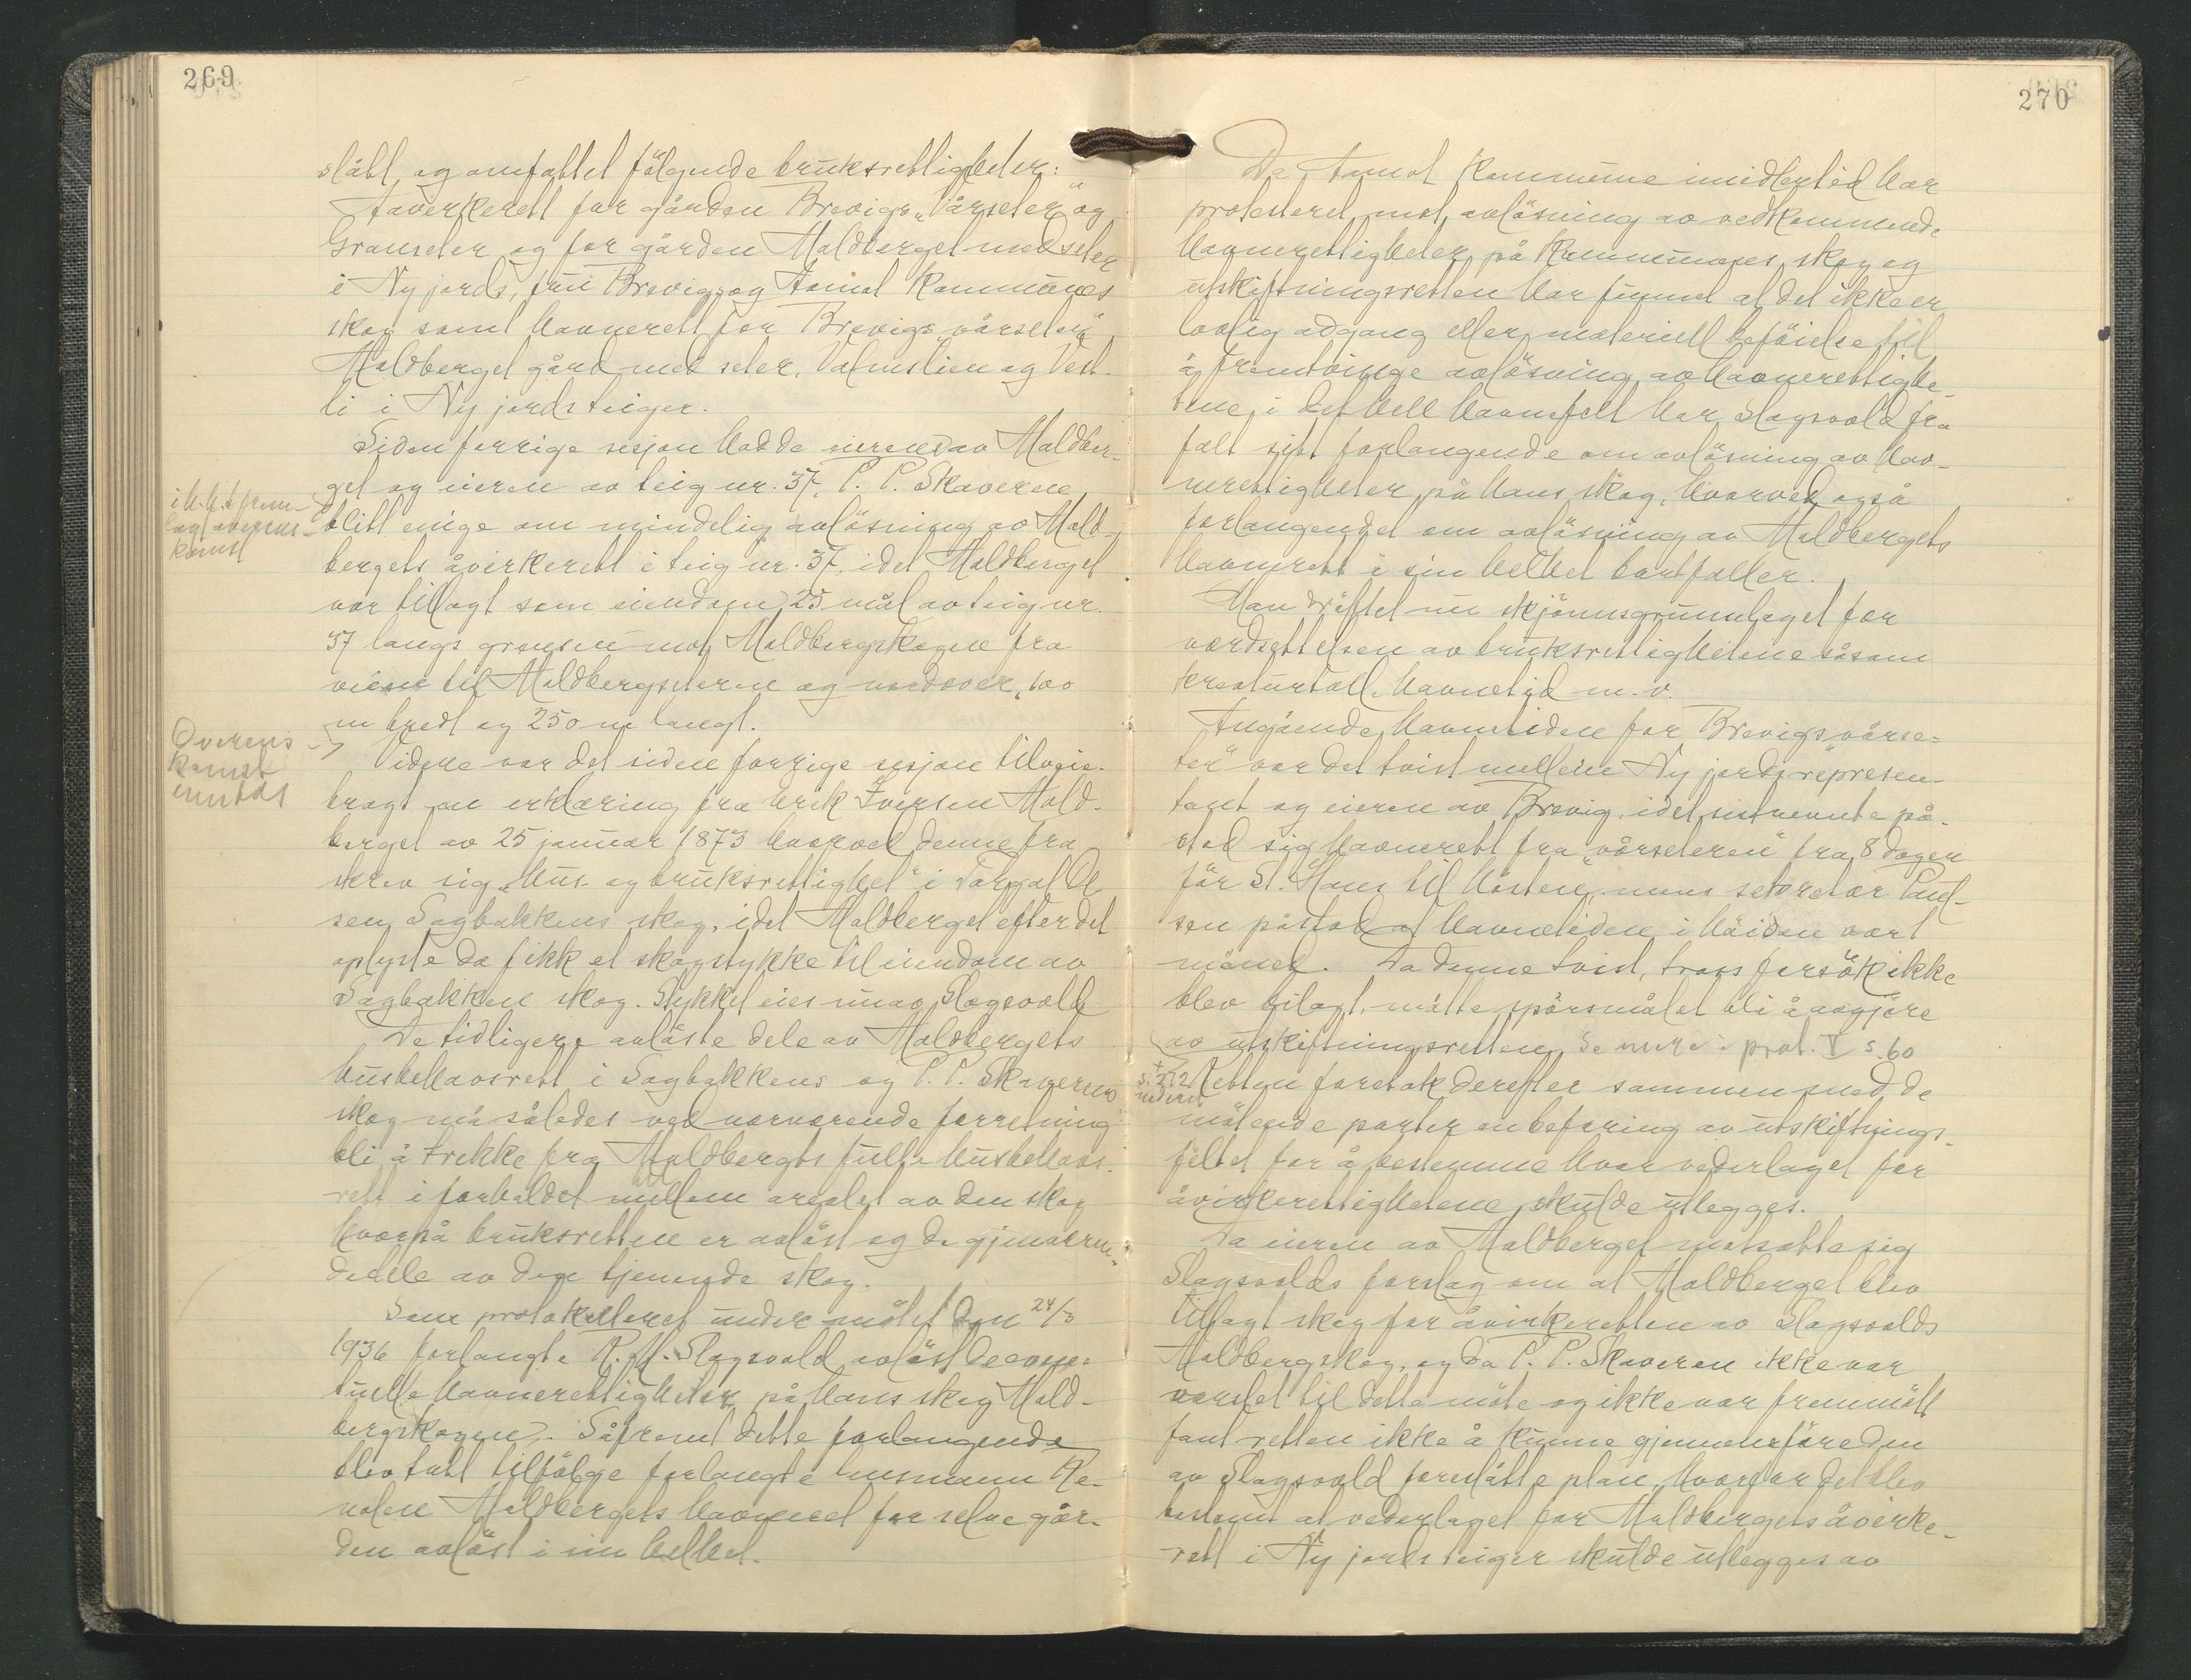 269
slått, og omfattet følgende bruksrettigheter:
Åverkerett for gården Brevigs "Vårseter" og
Granseter og for gården Maldberget med seter
i Ny jords, frü Brevigs og Åmot kommunes
skog samt havnerett for Brevigs "vårseter",
Maldberget gård med seter, og Vest-
li i Ny jords teiger.
Siden forrige sesjon hadde eieren av Maldber-
get og eieren av teig nr. 37, P. P. Skaveren
blitt enige om mindelig avløsning av Mald-
bergets åvirkerett i teig nr. 37, idet Maldberget
var tillagt som eiendom 25 mål av teig nr.
37 langs grensen mot Maldbergskogen fra
veien til Maldbergseteren og nordover, 100
m bredt og 250 m langt.
Videre var det siden forrige sesjon tilveie-
bragt en erklæring fra Erik Iversen Mald-
berget av 25 januar 1873 hvorved denne fra
skrev sig "Hus- og bruksrettighet" i Torgal Ol
sen Sagbakkens skog, idet Maldberget efter det
oplyste da fikk et skogstykke til eiendom av
Sagbakken skog. Stykket eies nu av Slagsvold
De tidligere avløste dele av Maldbergets
husbehovsrett i Sagbakkens og P. P. Skaverens
skog må således ved nærværende forretning
bli å trekke fra Maldbergets fulle husbehovs-
rett i forholdet mellem arealet av den skog
hvorpå bruksretten er avløst og de gjenværen-
de dele av den tjenende skog.
Som protokolleret under møtet den 24/3
1936 forlangte R. M. Slagsvold avløst de even-
tuelle havnerettigheter på hans skog Mald-
bergskogen. Såfremt dette forlangende
blev tatt tilfølge forlangte husmann Re-
nolen Maldbergets havnerett for selve går-
den avløst i sin helhet.
i h. h. t. frem-
lagt overens-
komst
Overens-
komst
inntas
270
Da Åmot kommune imidlertid har
protesteret mot avløsning av vedkommende
havnerettigheter på kommunens skog og
utskiftningsretten har funnet at det ikke er
lovlig adgang eller materiell beføielse til
å fremtvinge avløsning av havnerettighe-
tene i det hell havnefelt har Slagsvold fra
falt sitt forlangende om avløsning av hav-
nerettigheter på hans skog, hvorved også
forlangendet om avløsning av Maldbergets
havnerett i sin helhet bortfaller.
Man drøftet nu skjønnsgrunnlaget for
verdsettelsen av bruksrettighetene såsom
kreaturtall, havnetid m. v.
Angående havnetiden for Brevigs "vårse-
ter" var det tvist mellem Ny jords represen-
tant og eieren av Brevig, idet sistnevnte på-
stod sig havnerett fra "vårseteren" fra 8 dager
før St. Hans til høsten, mens sekretær
sen påstod at havnetiden i høiden var 1
måned. Da denne tvist, tross forsøk ikke
blev bilagt, måtte spørsmålet bli å avgjøre
av utskiftningsretten. Se mere i prot. V s. 60
+ s. 272 nederst
Retten foretok derefter sammen med de
møtende parter en befaring av utskiftnings-
feltet for å bestemme hvor vederlaget for
åvirkerettighetene skulde utlegges.
Da eieren av Maldberget motsatte sig
Slagsvolds forslag om at Maldberget blev
tillagt skog for åvirkeretten av Slagsvolds
Maldbergskog, og da P. P. Skaveren ikke var
varslet til dette møte og ikke var fremmøtt
fant retten ikke å kunne gjennemføre den
av Slagsvold foreslåtte plan, hvorfor det blev
bestemt at vederlaget for Maldbergets åvirke-
rett i Ny jords teiger skulde utlegges av